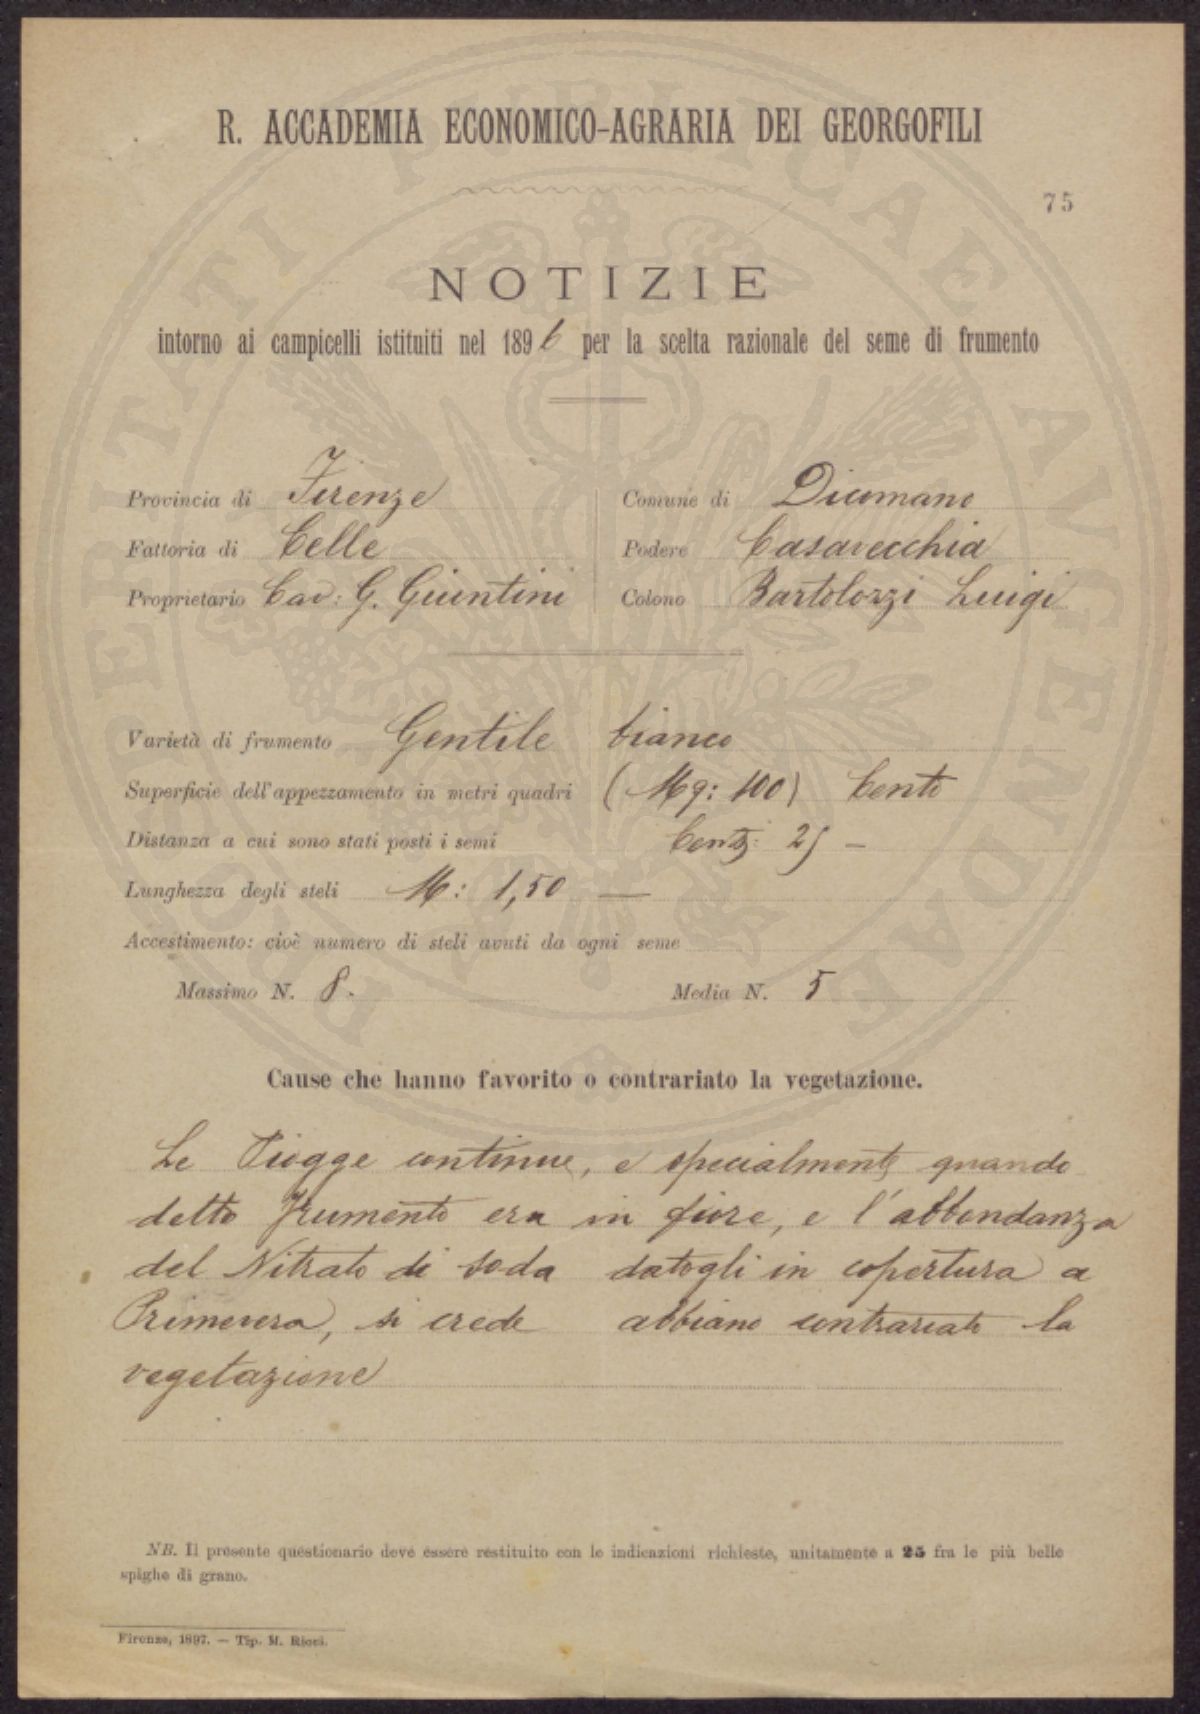 R. ACCADEMIA ECONOMICO-AGRARIA DEI GEORGOFILI
75
NOTIZIE
intorno ai campicelli istituiti nel 1896 per la scelta razionale del seme di frumento
Provincia di Firenze
Comune di Dicomano
Fattoria di Celle
Podere Casavecchia
Proprietario Cav: G. Giuntini
Colono Bartolozzi Luigi
Varietà di frumento Gentile bianco
Superficie dell'appezzamento in metri quadri (Mq: 100) Cento
Distanza a cui sono stati posti i semi Centi: 25 –
Lunghezza degli steli M: 1,50 —
Accestimento: cioè numero di steli avuti da ogni seme
Massimo N. 8. Media N. 5
Cause che hanno favorito o contrariato la vegetazione.
Le Piogge continue, e specialmente quando
detto frumento era in fiore, e l'abbondanza
del Nitrato di soda datogli in copertura a
Primevera, si crede abbiano contrariato la
vegetazione
NB. Il presente questionario deve essere restituito con le indicazioni richieste, unitamente a 25 fra le più belle
spighe di grano.
Firenze, 1897. — Tip. M. Ricci.
PROSPERITATI PUBLICAE AVGENDAE